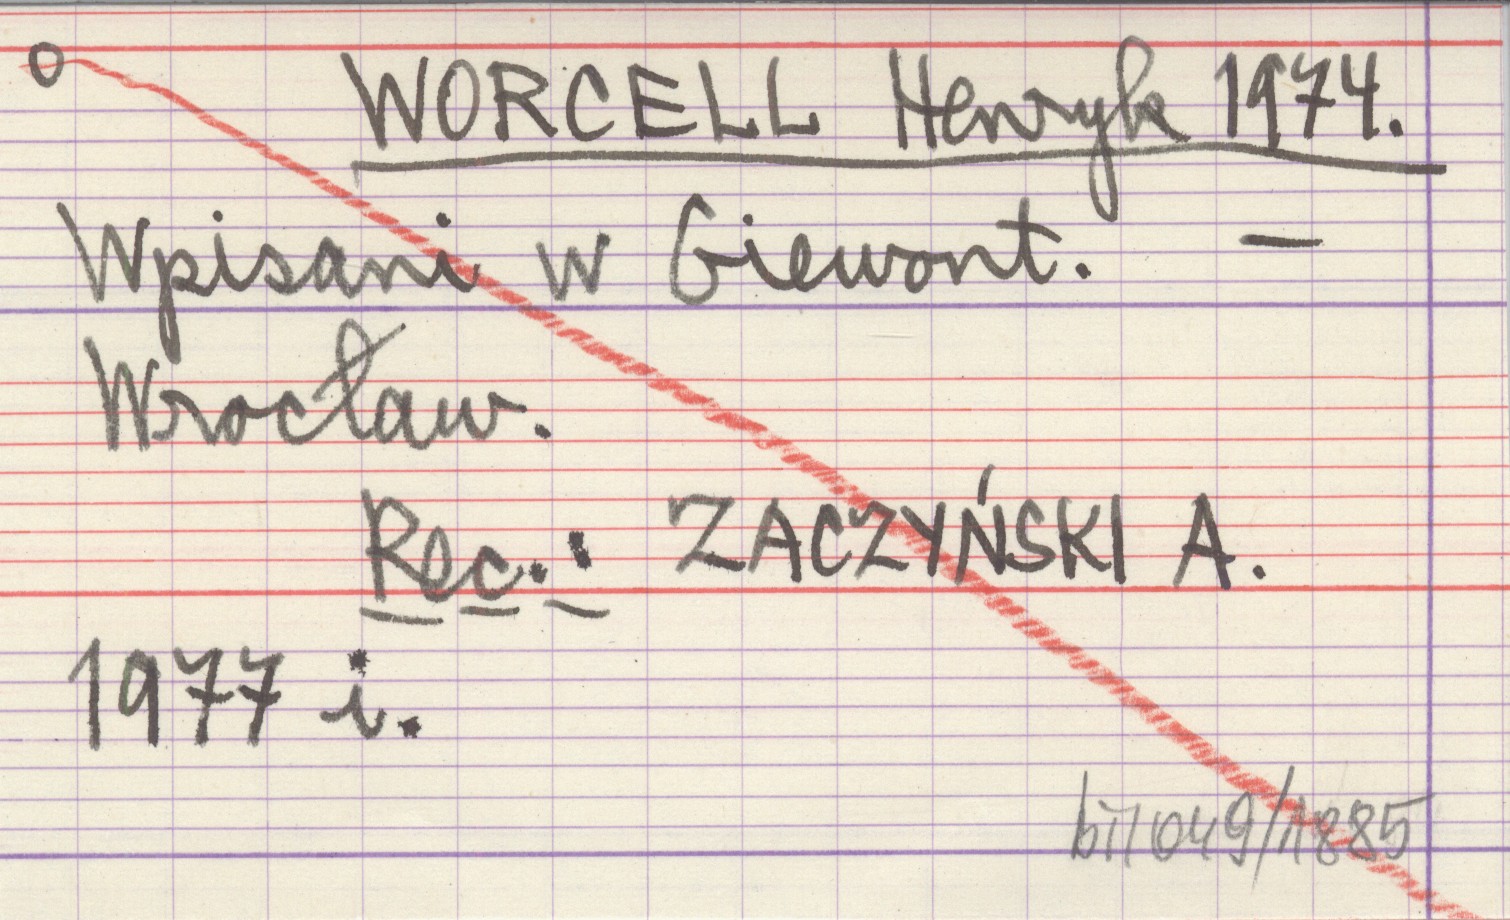 o WORCELL Henryk 1974.
Wpisani w Giewont. —
Wrocław.
Rec.: ZACZYŃSKI A.
1977 i.
bil049/1885